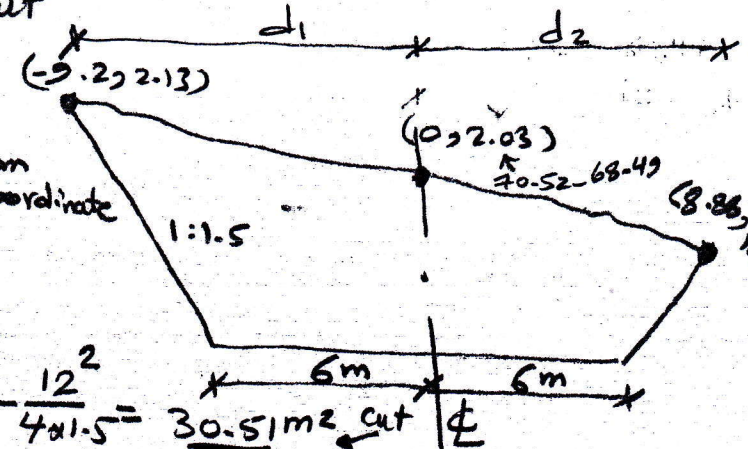 d1 d2
(-9.2, 2.13)
(0, 2.03)
70.52-68.49
coordinate
(8.88,
1:1.5
6m 6m
- 12² / 4x1.5 = 30.51 m2 cut ℄